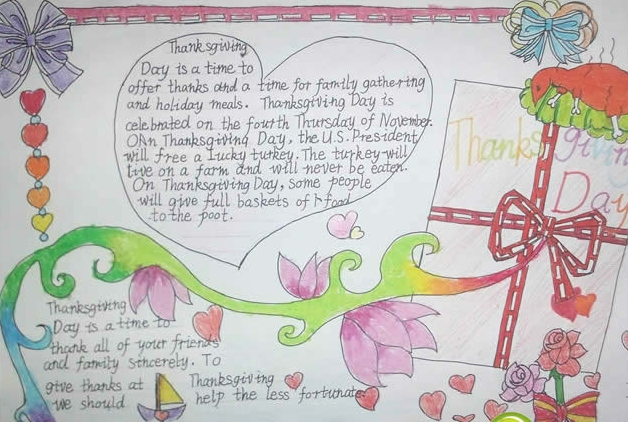 Thanksgiving
Day is a time to
offer thanks and a time for family gathering
and holiday meals. Thanksgiving Day is
celebrated on the fourth Thursday of November.
ONn Thanksgiving Day, the U.S. President
will free a Lucky turkey. The turkey will
live on a farm and will never be eaten.
On Thanksgiving Day, some people
will give full baskets of food
to the poot.
Thanks giving
Day
Thanksgiving
Day is a time to
thank all of your friends
and family sincerely. To
give thanks at
we should
Thanksgiving
help the less fortunate.